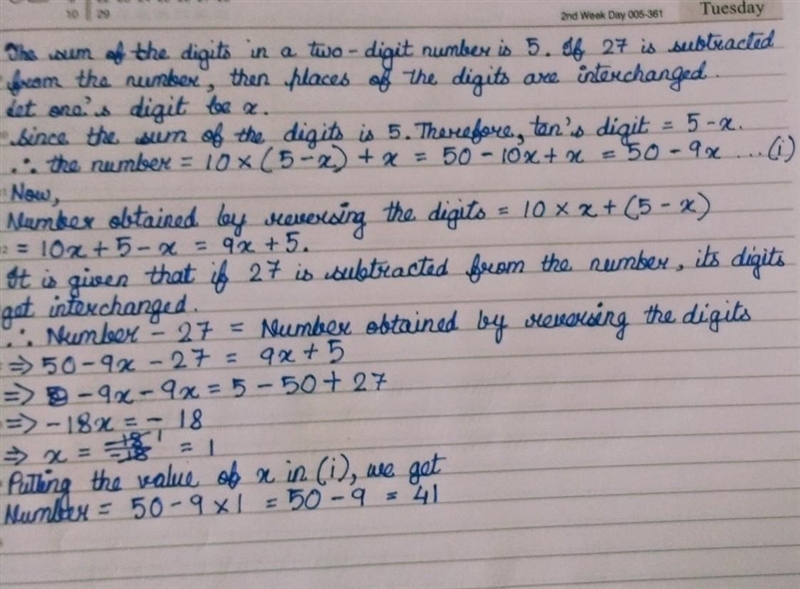 10 29
2nd Week Day 005-361 Tuesday
The sum of the digits in a two-digit number is 5. If 27 is subtracted
from the number, then places of the digits are interchanged.
Let one's digit be x.
Since the sum of the digits is 5. Therefore, ten's digit = 5-x.
∴ the number = 10×(5-x)+x = 50-10x+x = 50-9x ...(i)
Now,
Number obtained by reversing the digits = 10×x+(5-x)
= 10x+5-x = 9x+5.
It is given that if 27 is subtracted from the number, its digits
get interchanged.
∴ Number - 27 = Number obtained by reversing the digits
⇒ 50-9x-27 = 9x+5
⇒ -9x-9x = 5-50+27
⇒ -18x = -18
⇒ x = -18/-18 1 = 1
Putting the value of x in (i), we get
Number = 50-9×1 = 50-9 = 41